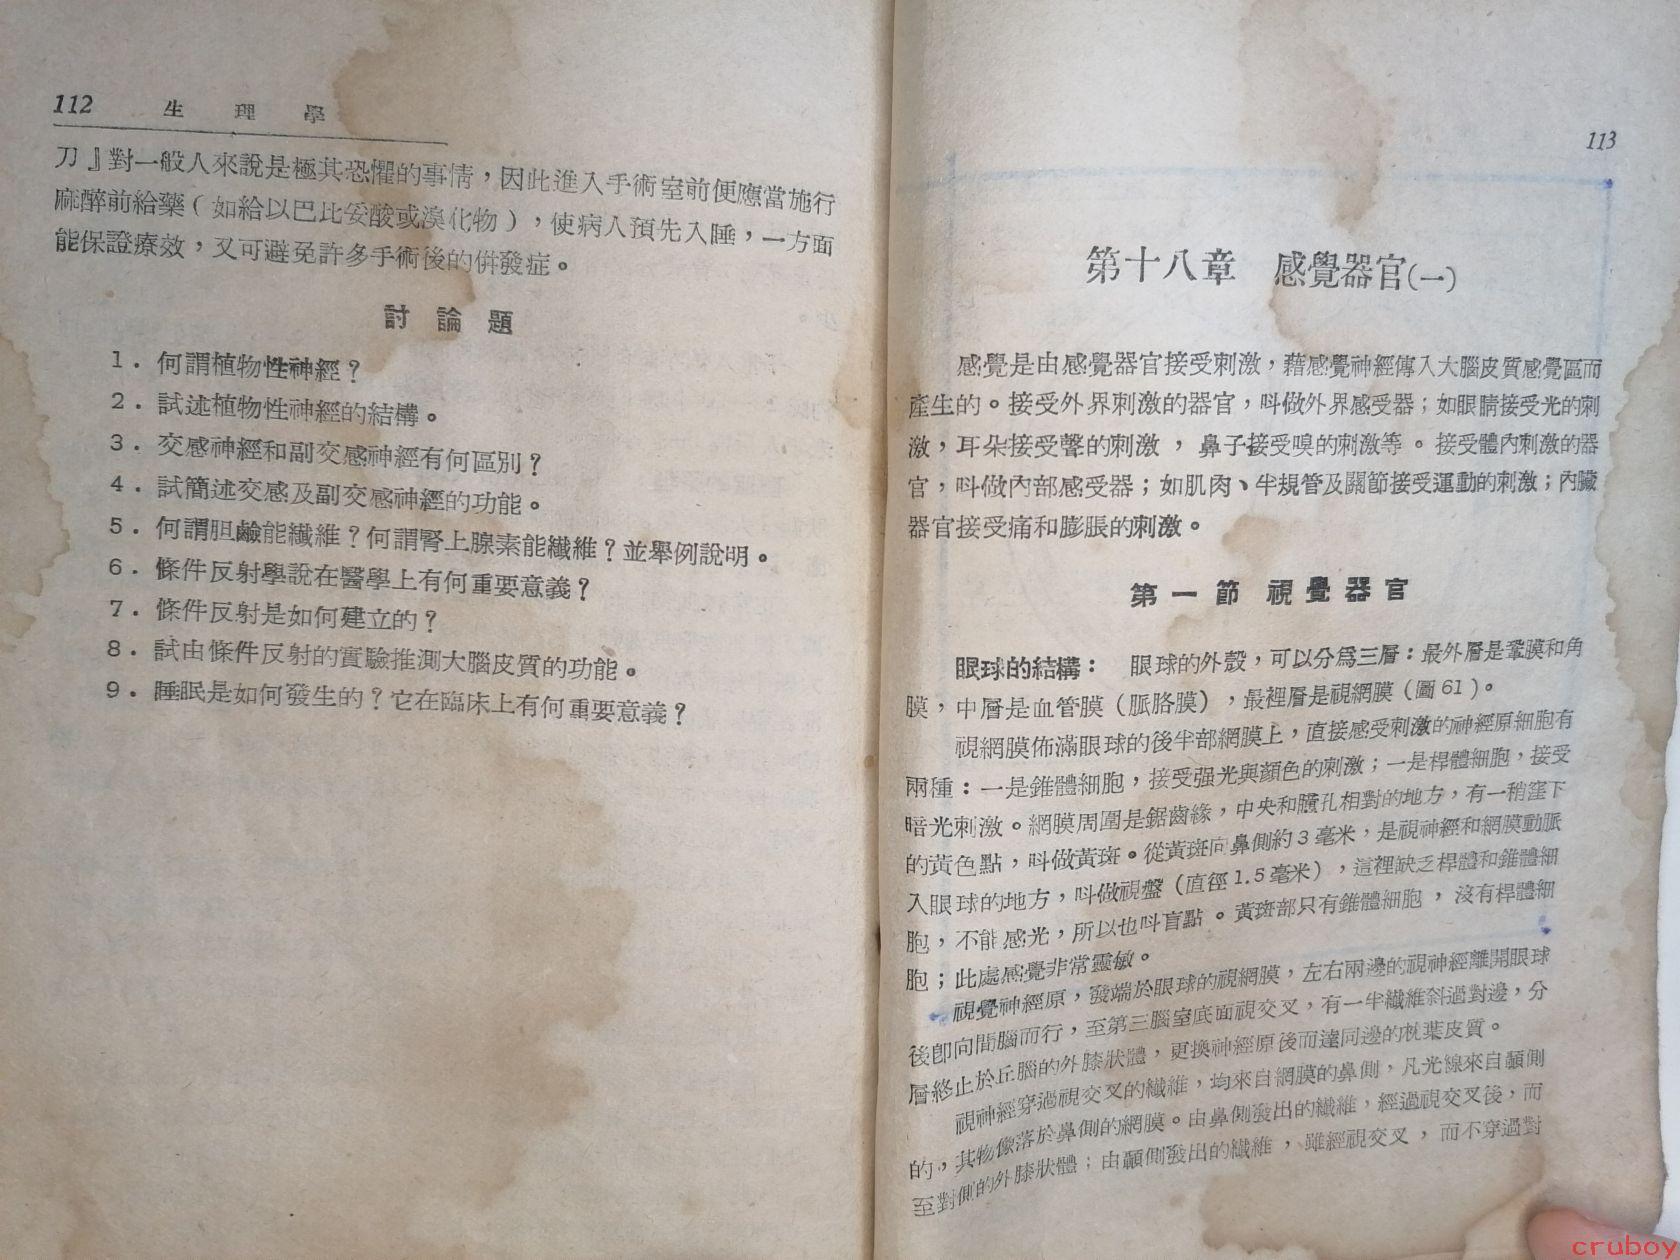 112 生理學
刀』對一般人來說是極其恐懼的事情，因此進入手術室前便應當施行
麻醉前給藥（如給以巴比妥酸或溴化物），使病人預先入睡，一方面
能保證療效，又可避免許多手術後的併發症。
討論題
1．何謂植物性神經？
2．試述植物性神經的結構。
3．交感神經和副交感神經有何區別？
4．試簡述交感及副交感神經的功能。
5．何謂胆鹼能纖維？何謂腎上腺素能纖維？並舉例說明。
6．條件反射學說在醫學上有何重要意義？
7．條件反射是如何建立的？
8．試由條件反射的實驗推測大腦皮質的功能。
9．睡眠是如何發生的？它在臨床上有何重要意義？
113
第十八章 感覺器官(一)
感覺是由感覺器官接受刺激，藉感覺神經傳入大腦皮質感覺區而
產生的。接受外界刺激的器官，叫做外界感受器；如眼睛接受光的刺
激，耳朵接受聲的刺激，鼻子接受嗅的刺激等。接受體內刺激的器
官，叫做內部感受器；如肌肉、半規管及關節接受運動的刺激；內臟
器官接受痛和膨脹的刺激。
第一節 視覺器官
眼球的結構： 眼球的外殼，可以分為三層：最外層是鞏膜和角
膜，中層是血管膜（脈胳膜），最裡層是視網膜（圖61）。
視網膜佈滿眼球的後半部網膜上，直接感受刺激的神經原細胞有
兩種：一是錐體細胞，接受强光與顏色的刺激；一是桿體細胞，接受
暗光刺激。網膜周圍是鋸齒緣，中央和瞳孔相對的地方，有一稍窪下
的黃色點，叫做黃斑。從黃斑向鼻側約3毫米，是視神經和網膜動脈
入眼球的地方，叫做視盤（直徑1.5毫米），這裡缺乏桿體和錐體細
胞，不能感光，所以也叫盲點。黃斑部只有錐體細胞，沒有桿體細
胞；此處感覺非常靈敏。
視覺神經原，發端於眼球的視網膜，左右兩邊的視神經離開眼球
後卽向間腦而行，至第三腦室底面視交叉，有一半纖維斜過對邊，分
層終止於丘腦的外膝狀體，更換神經原後而達同邊的枕葉皮質。
視神經穿過視交叉的纖維，均來自網膜的鼻側，凡光線來自顳側
的，其物像落於鼻側的網膜。由鼻側發出的纖維，經過視交叉後，而
至對側的外膝狀體；由顳側發出的纖維，雖經視交叉，而不穿過對
cruboy